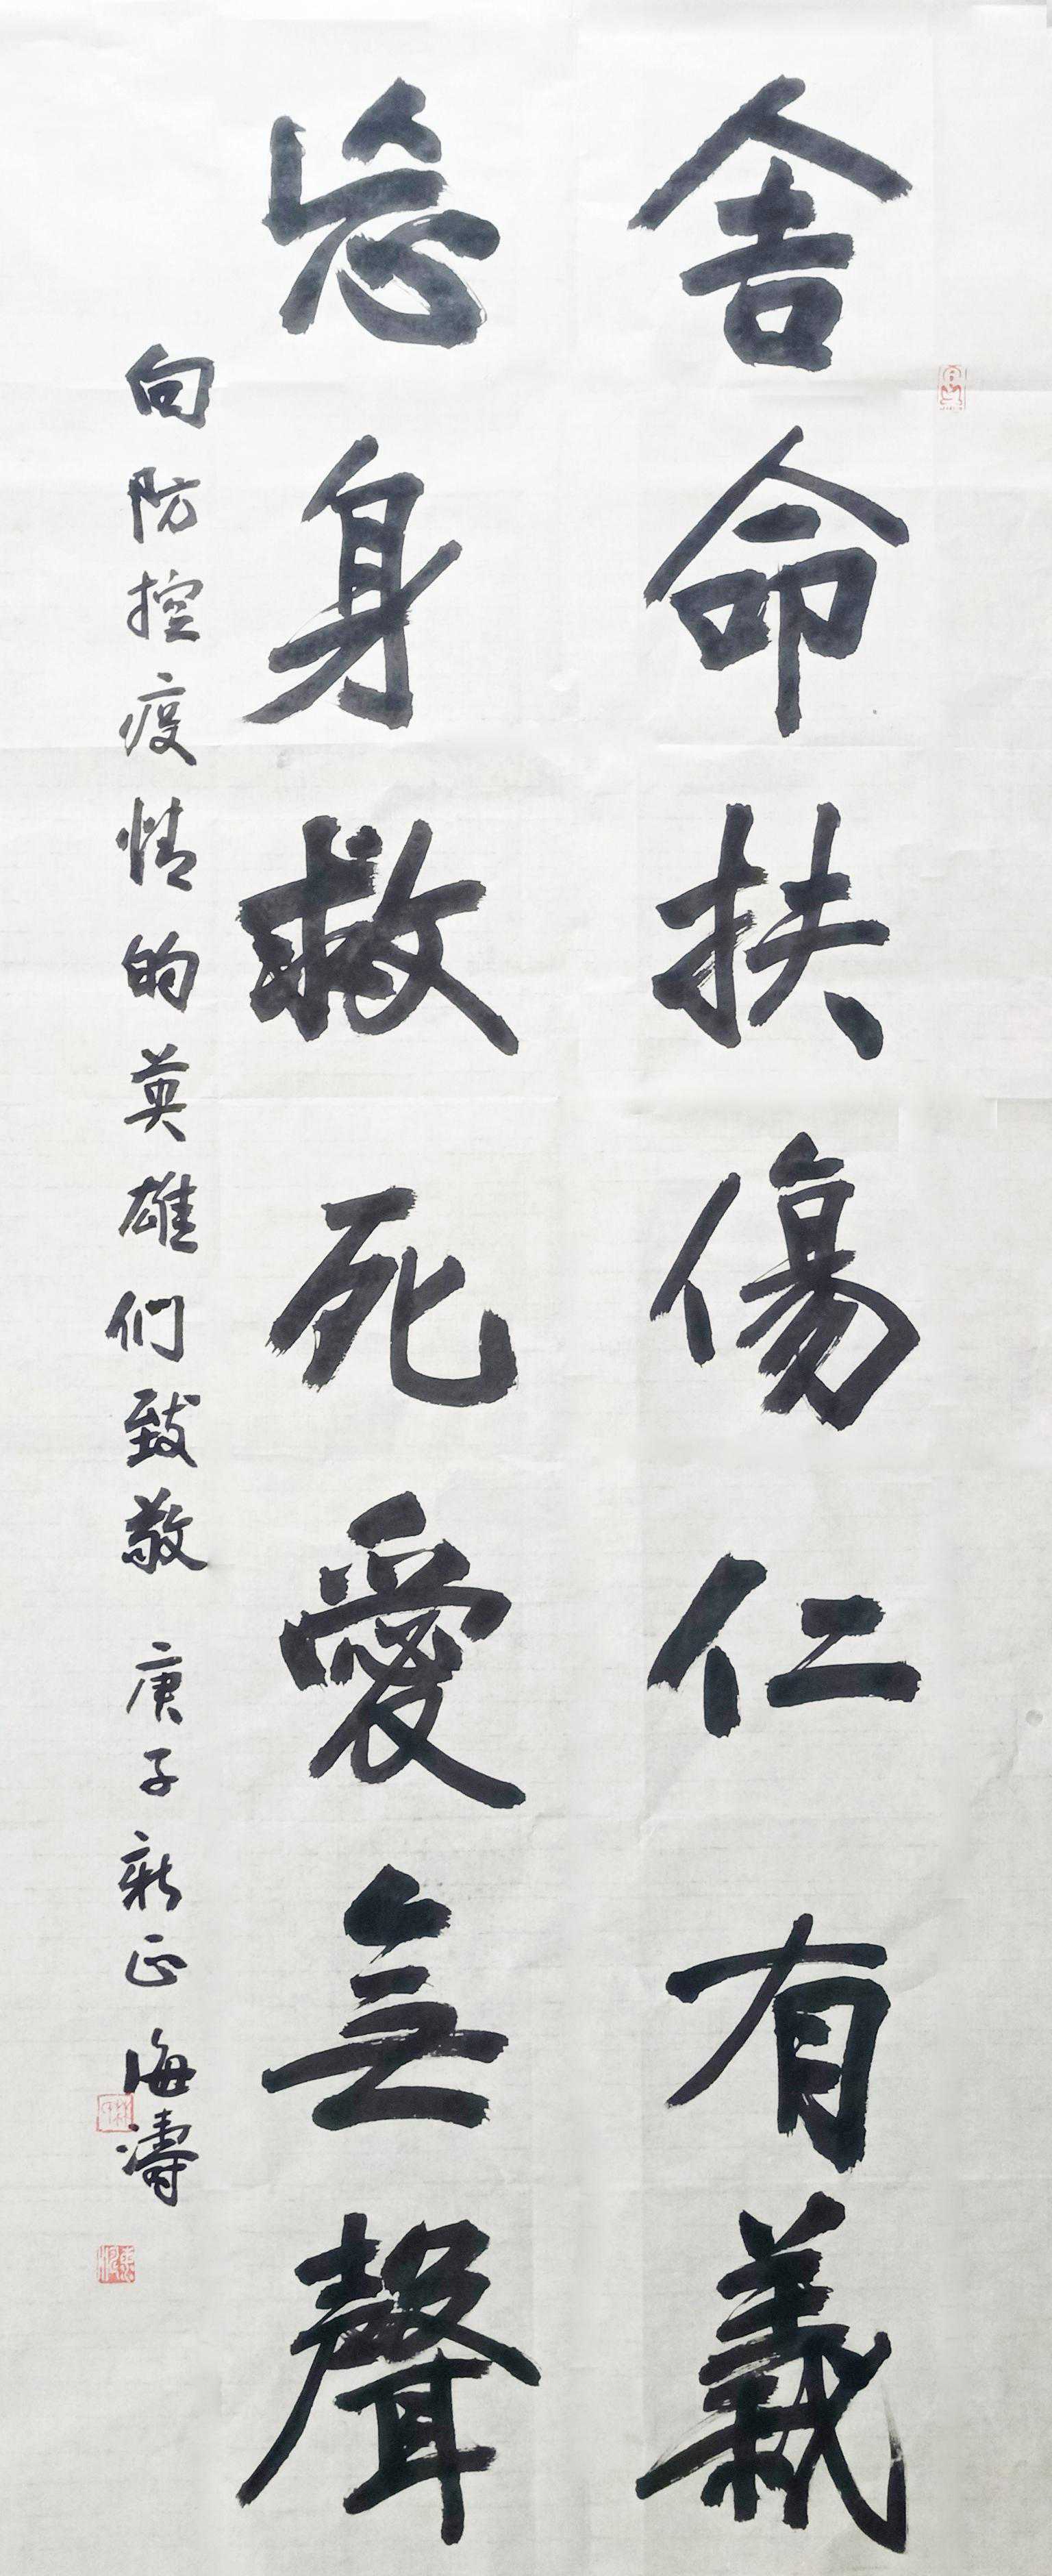 舍命扶傷仁有義
忘身救死愛無聲
向防控疫情的英雄们致敬 庚子新正 海濤